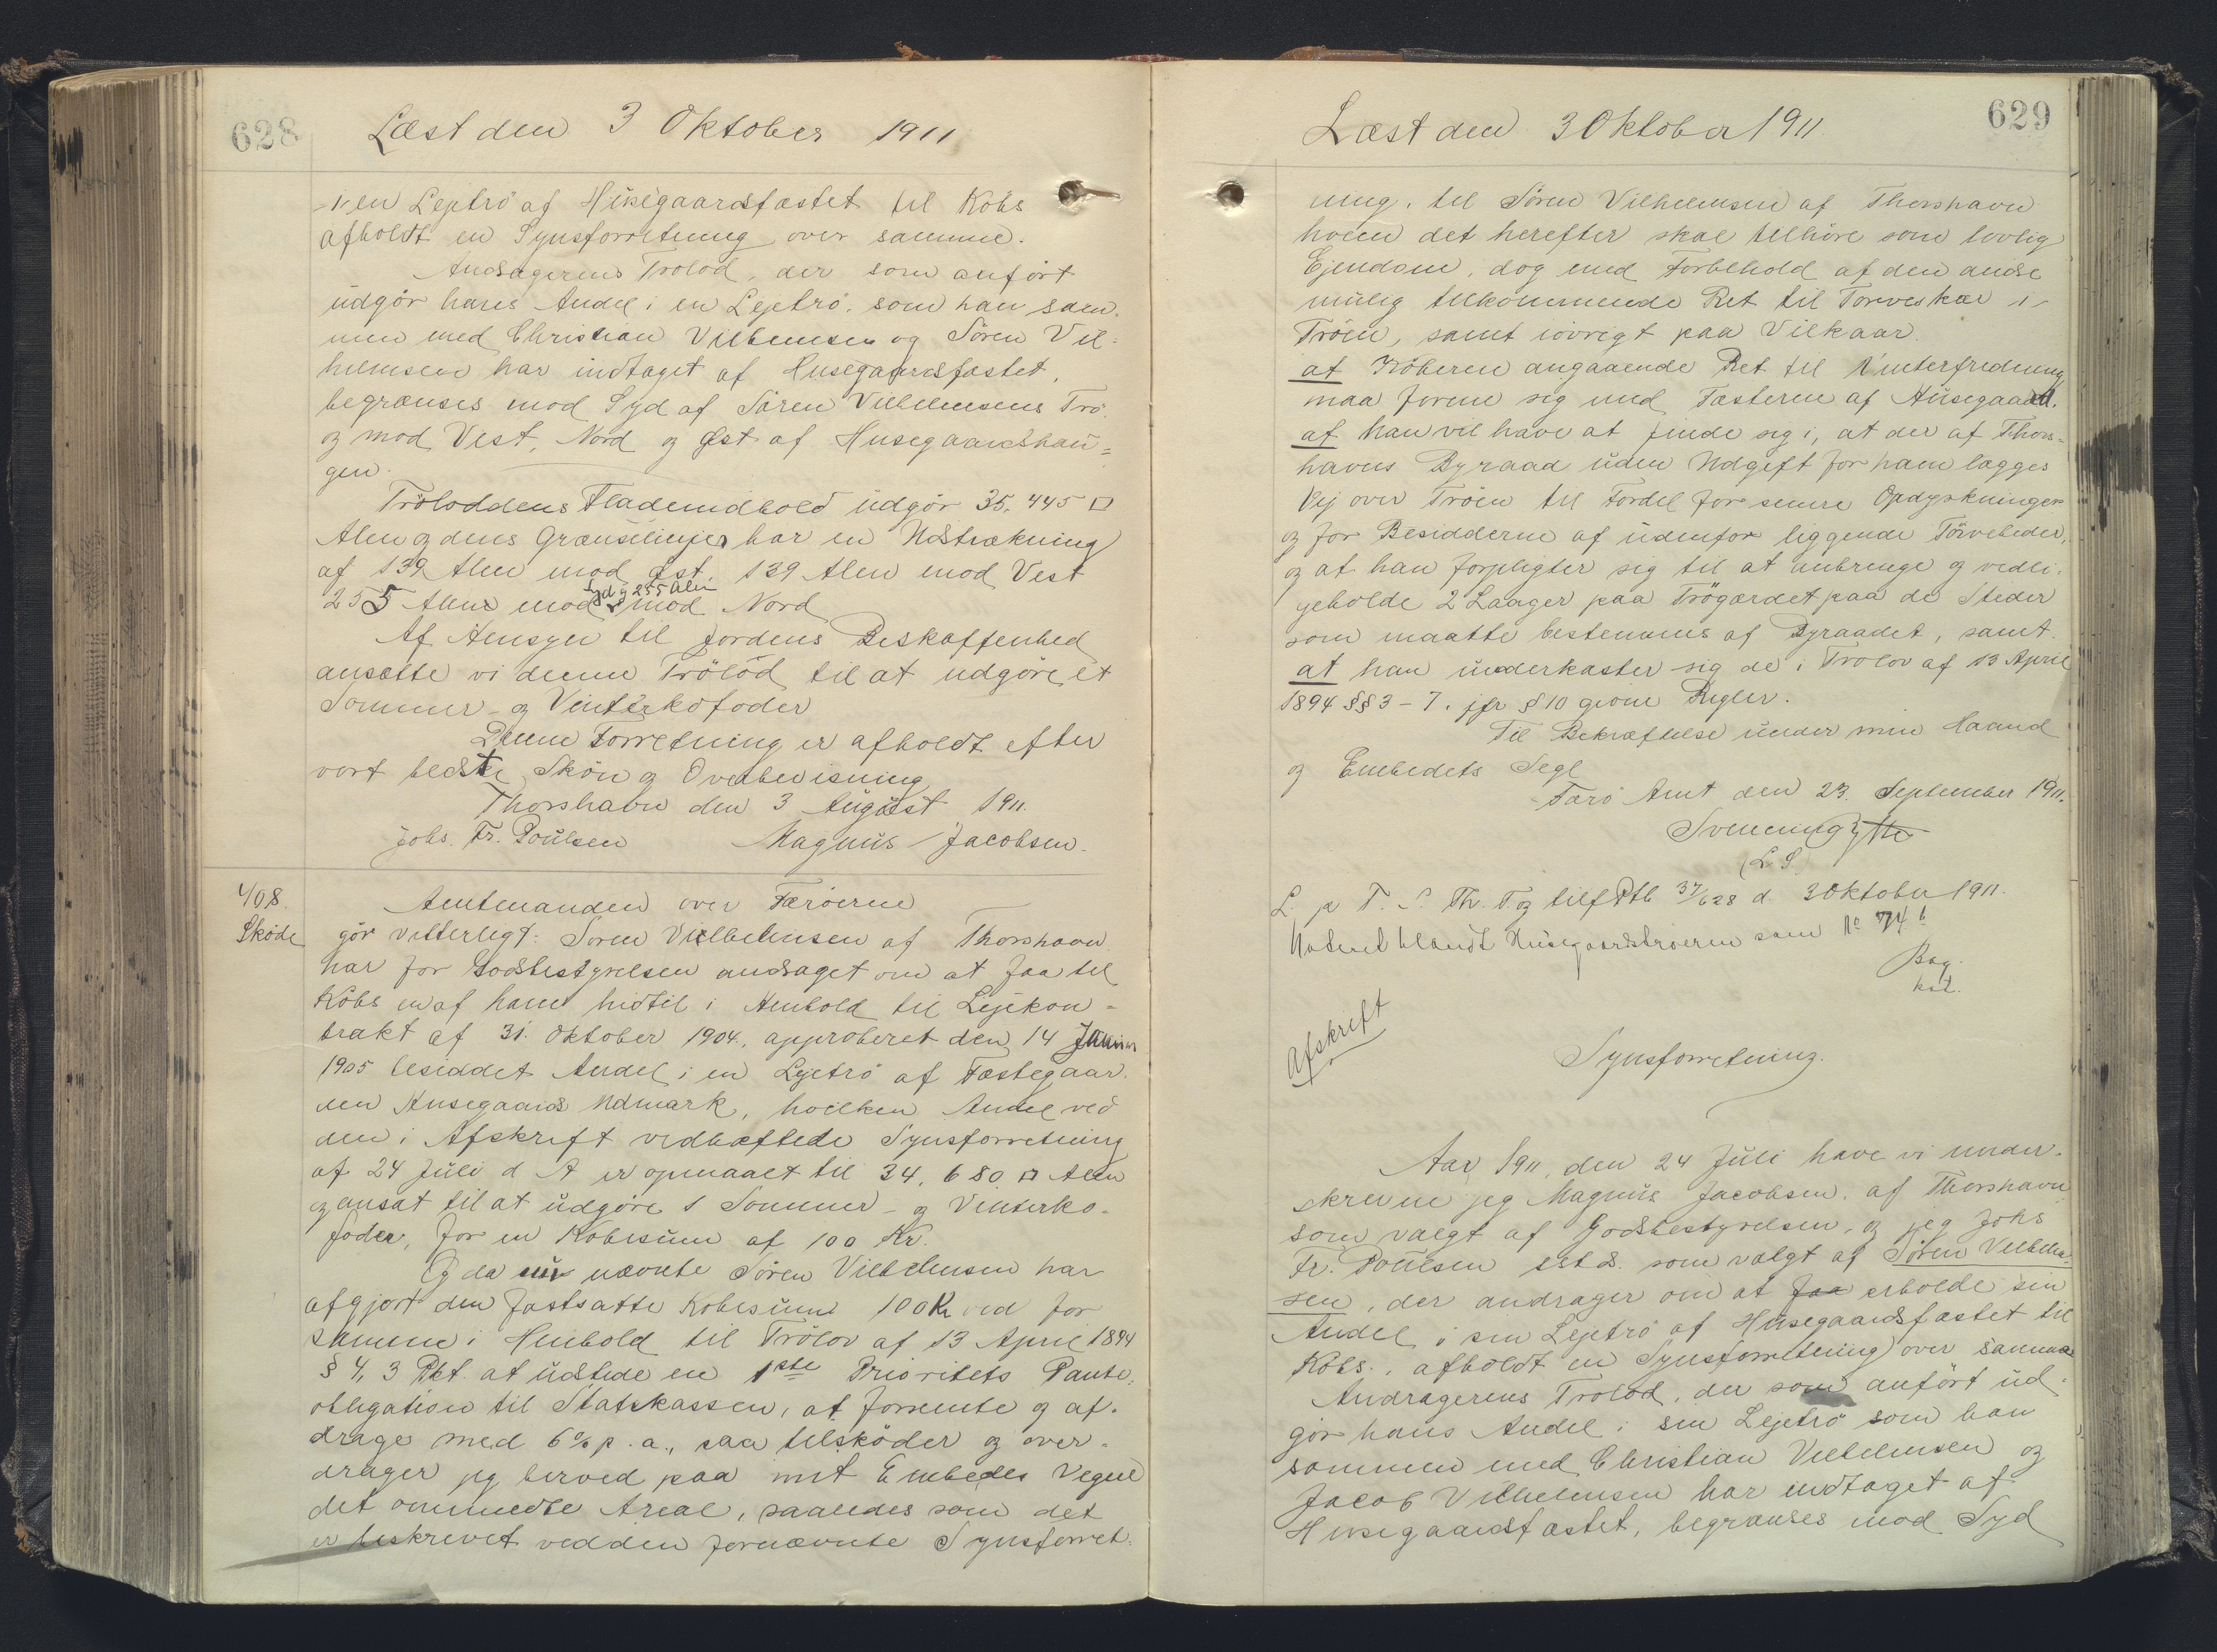 628
Læst den 3 Oktober 1911
i en Lejetrö af Husegaardsfæstet til Köbs
afholdt en Synsforretning over samme.
Andragerens Trölod, der som anfört
udgör hans Andel i en Lejetrö, som han sam-
men med Christian Vilhelmsen og Sören Vil-
helmsen har indtaget af Husegaardsfæstet,
begrænses mod Syd af Sören Vilhelmsens Trö
og mod Vest, Nord og Øst af Husegaardshau-
gen.
Tröloddens Fladeindhold udgör 35,445 □
Alen og dens Grænselinjer har en Udstrækning
af 139 Alen mod Øst, 139 Alen mod Vest
Syd og 255 Alen
255 Alen mod mod Nord
Af Hensyn til Jordens Beskaffenhed
ansætte vi denne Trölod til at udgöre et
Sommer- og Vinterkofoder
Denne Forretning er afholdt efter
vort bedste Skön og Overbevisning
Thorshavn den 3 August 1911.
Johs. Fr. Poulsen Magnus Jacobsen.
408.
Sköde
Amtmanden over Færöerne
gör vitterligt: Sören Vilhelmsen af Thorshavn
har for Godsbestyrelsen andraget om at faa til
Köbs en af ham hidtil i Henhold til Lejekon-
trakt af 31. Oktober 1904, approberet den 14 Januar
1905 besiddet Andel i en Lejetrö af Fæstegaar-
den Husegaards Udmark, hvilken Andel ved
den i Afskrift vedhæftede Synsforretning
af 24 Juli d A er opmaalt til 34,680 □ Alen
og ansat til at udgöre 1 Sommer- og Vinterko-
foder, for en Köbesum af 100 Kr.
Og da nu nævnte Sören Vilhelmsen har
afgjort den fastsatte Köbesum 100 Kr ved for
samme i Henhold til Trölov af 13 April 1894
§ 4, 3 Pkt. at udstede en 1ste Prioritets Pante-
obligation til Statskassen, at forrente og af-
drage med 6% p. a., saa tilsköder og over-
drager jeg herved paa mit Embedes Vegne
det ommeldte Areal, saaledes som det
er beskrevet ved den fornævnte Synsforret-
629
Læst den 3 Oktober 1911.
ning, til Sören Vilhelmsen af Thorshavn
hvem det herefter skal tilhöre som lovlig
Ejendom, dog med Forbehold af den andre
mulig tilkommende Ret til Törveskær i
Tröen, samt iövrigt paa Vilkaar.
at Köberen angaaende Ret til Vinterfredning
maa forene sig med Fæsteren af Husegaard,
at han vil have at finde sig i, at der af Thors-
havns Byraad uden Udgift for ham lægges
Vej over Tröen til Fordel for senere Opdyrkninger
og for Besidderne af udenfor liggende Törveheder,
og at han forpligter sig til at anbringe og vedli-
geholde 2 Laager paa Trögærdet paa de Steder
som maatte bestemmes af Byraadet, samt
at han underkaster sig de i Trölov af 13 April
1894 §§ 3-7. jfr § 10 givne Regler.
Til Bekræftelse under min Haand
og Embedets Segl
Færö Amt den 23. September 1911.
Svenning Rytter
(L.S.)
L. p T. S. Th. T. og tilf Ptb 37/628 d. 3 Oktober 1911.
Noteret blandt Husegaardströerne som No 74 b
Bag.
kst.
Afskrift
Synsforretning.
Aar 1911, den 24 Juli have vi under-
skrevne jeg Magnus Jacobsen, af Thorshavn
som valgt af Godsbestyrelsen, og jeg Johs
Fr. Poulsen sstds. som valgt af Sören Vilhelm-
sen, der andrager om at faa erholde sin
Andel i sin Lejetrö af Husegaardsfæstet til
Köbs, afholdt en Synsforretning over samme
Andragerens Trölod, der som anfört ud-
gör hans Andel i sin Lejetrö som han
sammen med Christian Vilhelmsen og
Jacob Vilhelmsen har indtaget af
Husegaardsfæstet, begrænses mod Syd